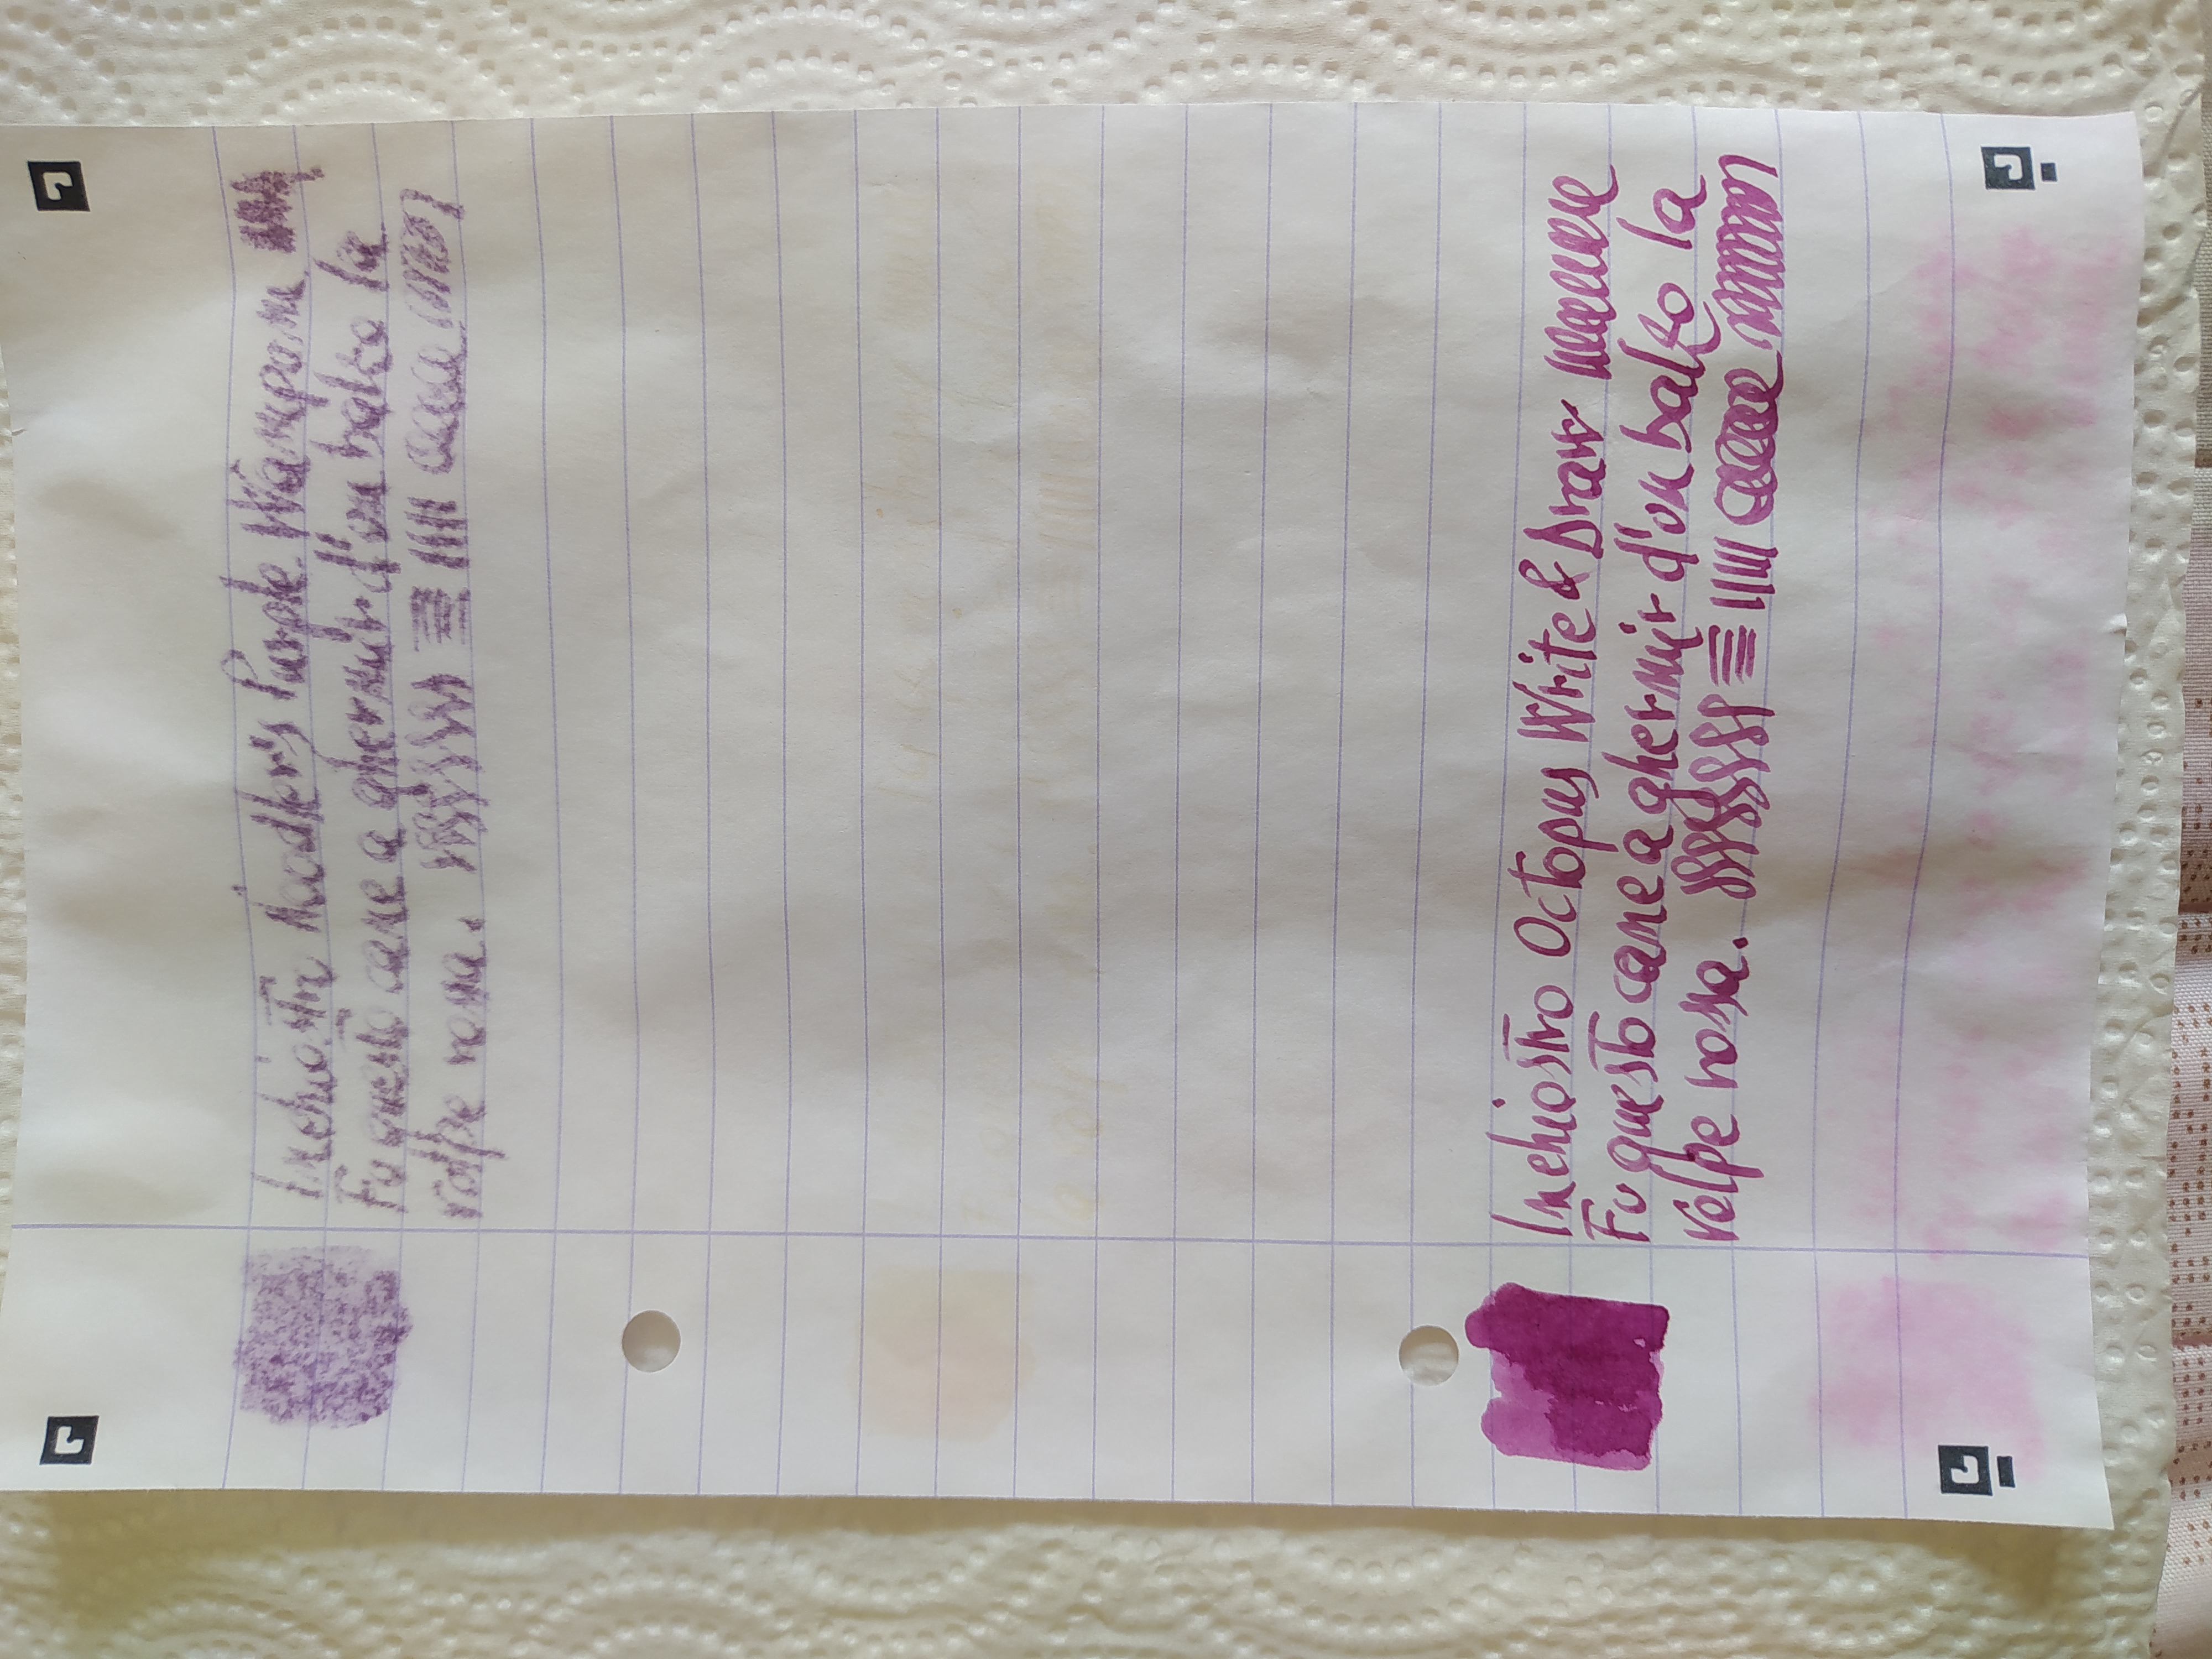 Inchiostro Noodler's Purple Wampum
Fu questo cane a ghermir d'un balzo la
volpe rossa.
Inchiostro Octopus Write & Draw
Fu questo cane a ghermir d'un balzo la
volpe rossa.